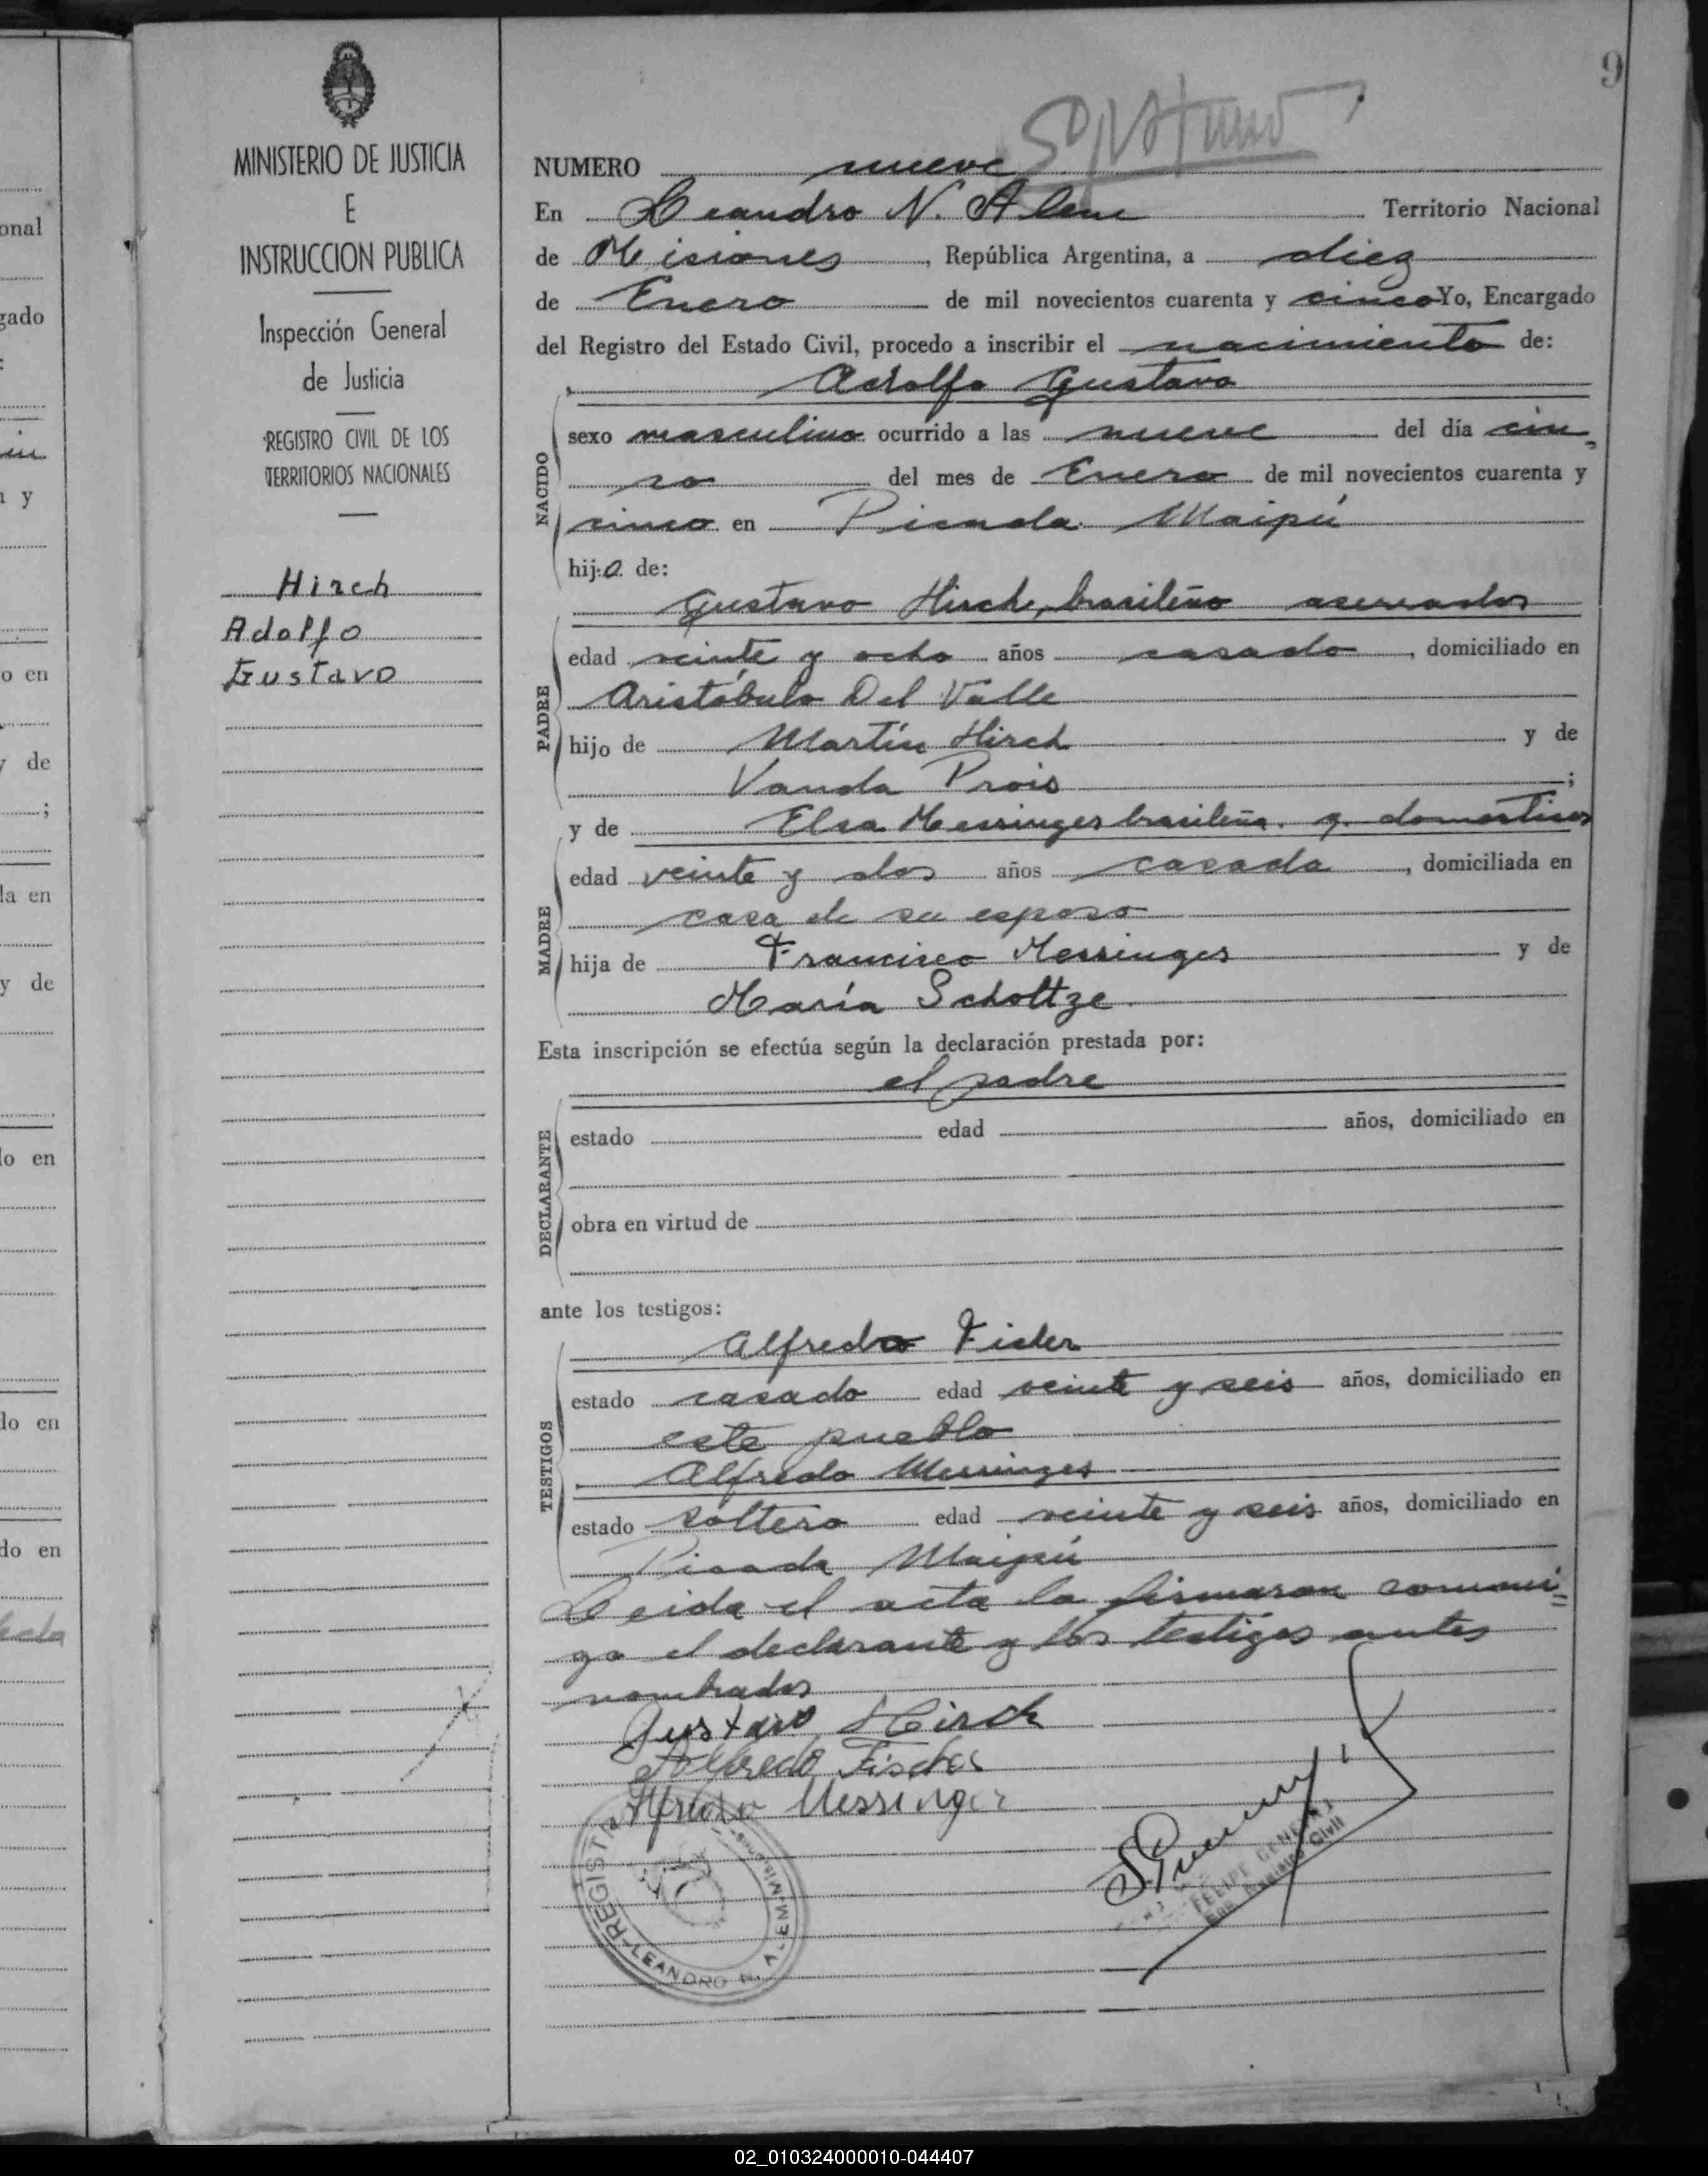 9
MINISTERIO DE JUSTICIA
E
INSTRUCCION PUBLICA
Inspección General
de Justicia
REGISTRO CIVIL DE LOS
TERRITORIOS NACIONALES
Hirch
Adolfo
Gustavo
NUMERO nueve
En Leandro N. Alem Territorio Nacional
de Misiones, República Argentina, a diez
de Enero de mil novecientos cuarenta y cinco Yo, Encargado
del Registro del Estado Civil, procedo a inscribir el nacimiento de:
Adolfo Gustavo
NACIDO
sexo masculino ocurrido a las nueve del día cin
co del mes de Enero de mil novecientos cuarenta y
cinco en Picada Maipú
hijo de:
Gustavo Hirch, brasileño aserrador
PADRE
edad veinte y ocho años casado, domiciliado en
Aristóbulo Del Valle
hijo de Martín Hirch y de
Vanda Prois;
y de Elsa Messinger brasileña. q. domésticos
MADRE
edad veinte y dos años casada, domiciliada en
casa de su esposo
hija de Francisco Messinger y de
María Scholtze.
Esta inscripción se efectúa según la declaración prestada por:
el padre
DECLARANTE
estado edad años, domiciliado en
obra en virtud de
ante los testigos:
Alfredo Fisher
TESTIGOS
estado casado edad veinte y seis años, domiciliado en
este pueblo
Alfredo Messinger
estado soltero edad veinte y seis años, domiciliado en
Picada Maipú
Leida el acta la firmaron conmi=
go el declarante y los testigos antes
nombrados
Gustavo Hirch
Alfredo Fischer
Alfredo Messinger
REGISTRO
LEANDRO N. ALEM-Misiones
FELIPE
Enc. Registro Civil
02_010324000010-044407